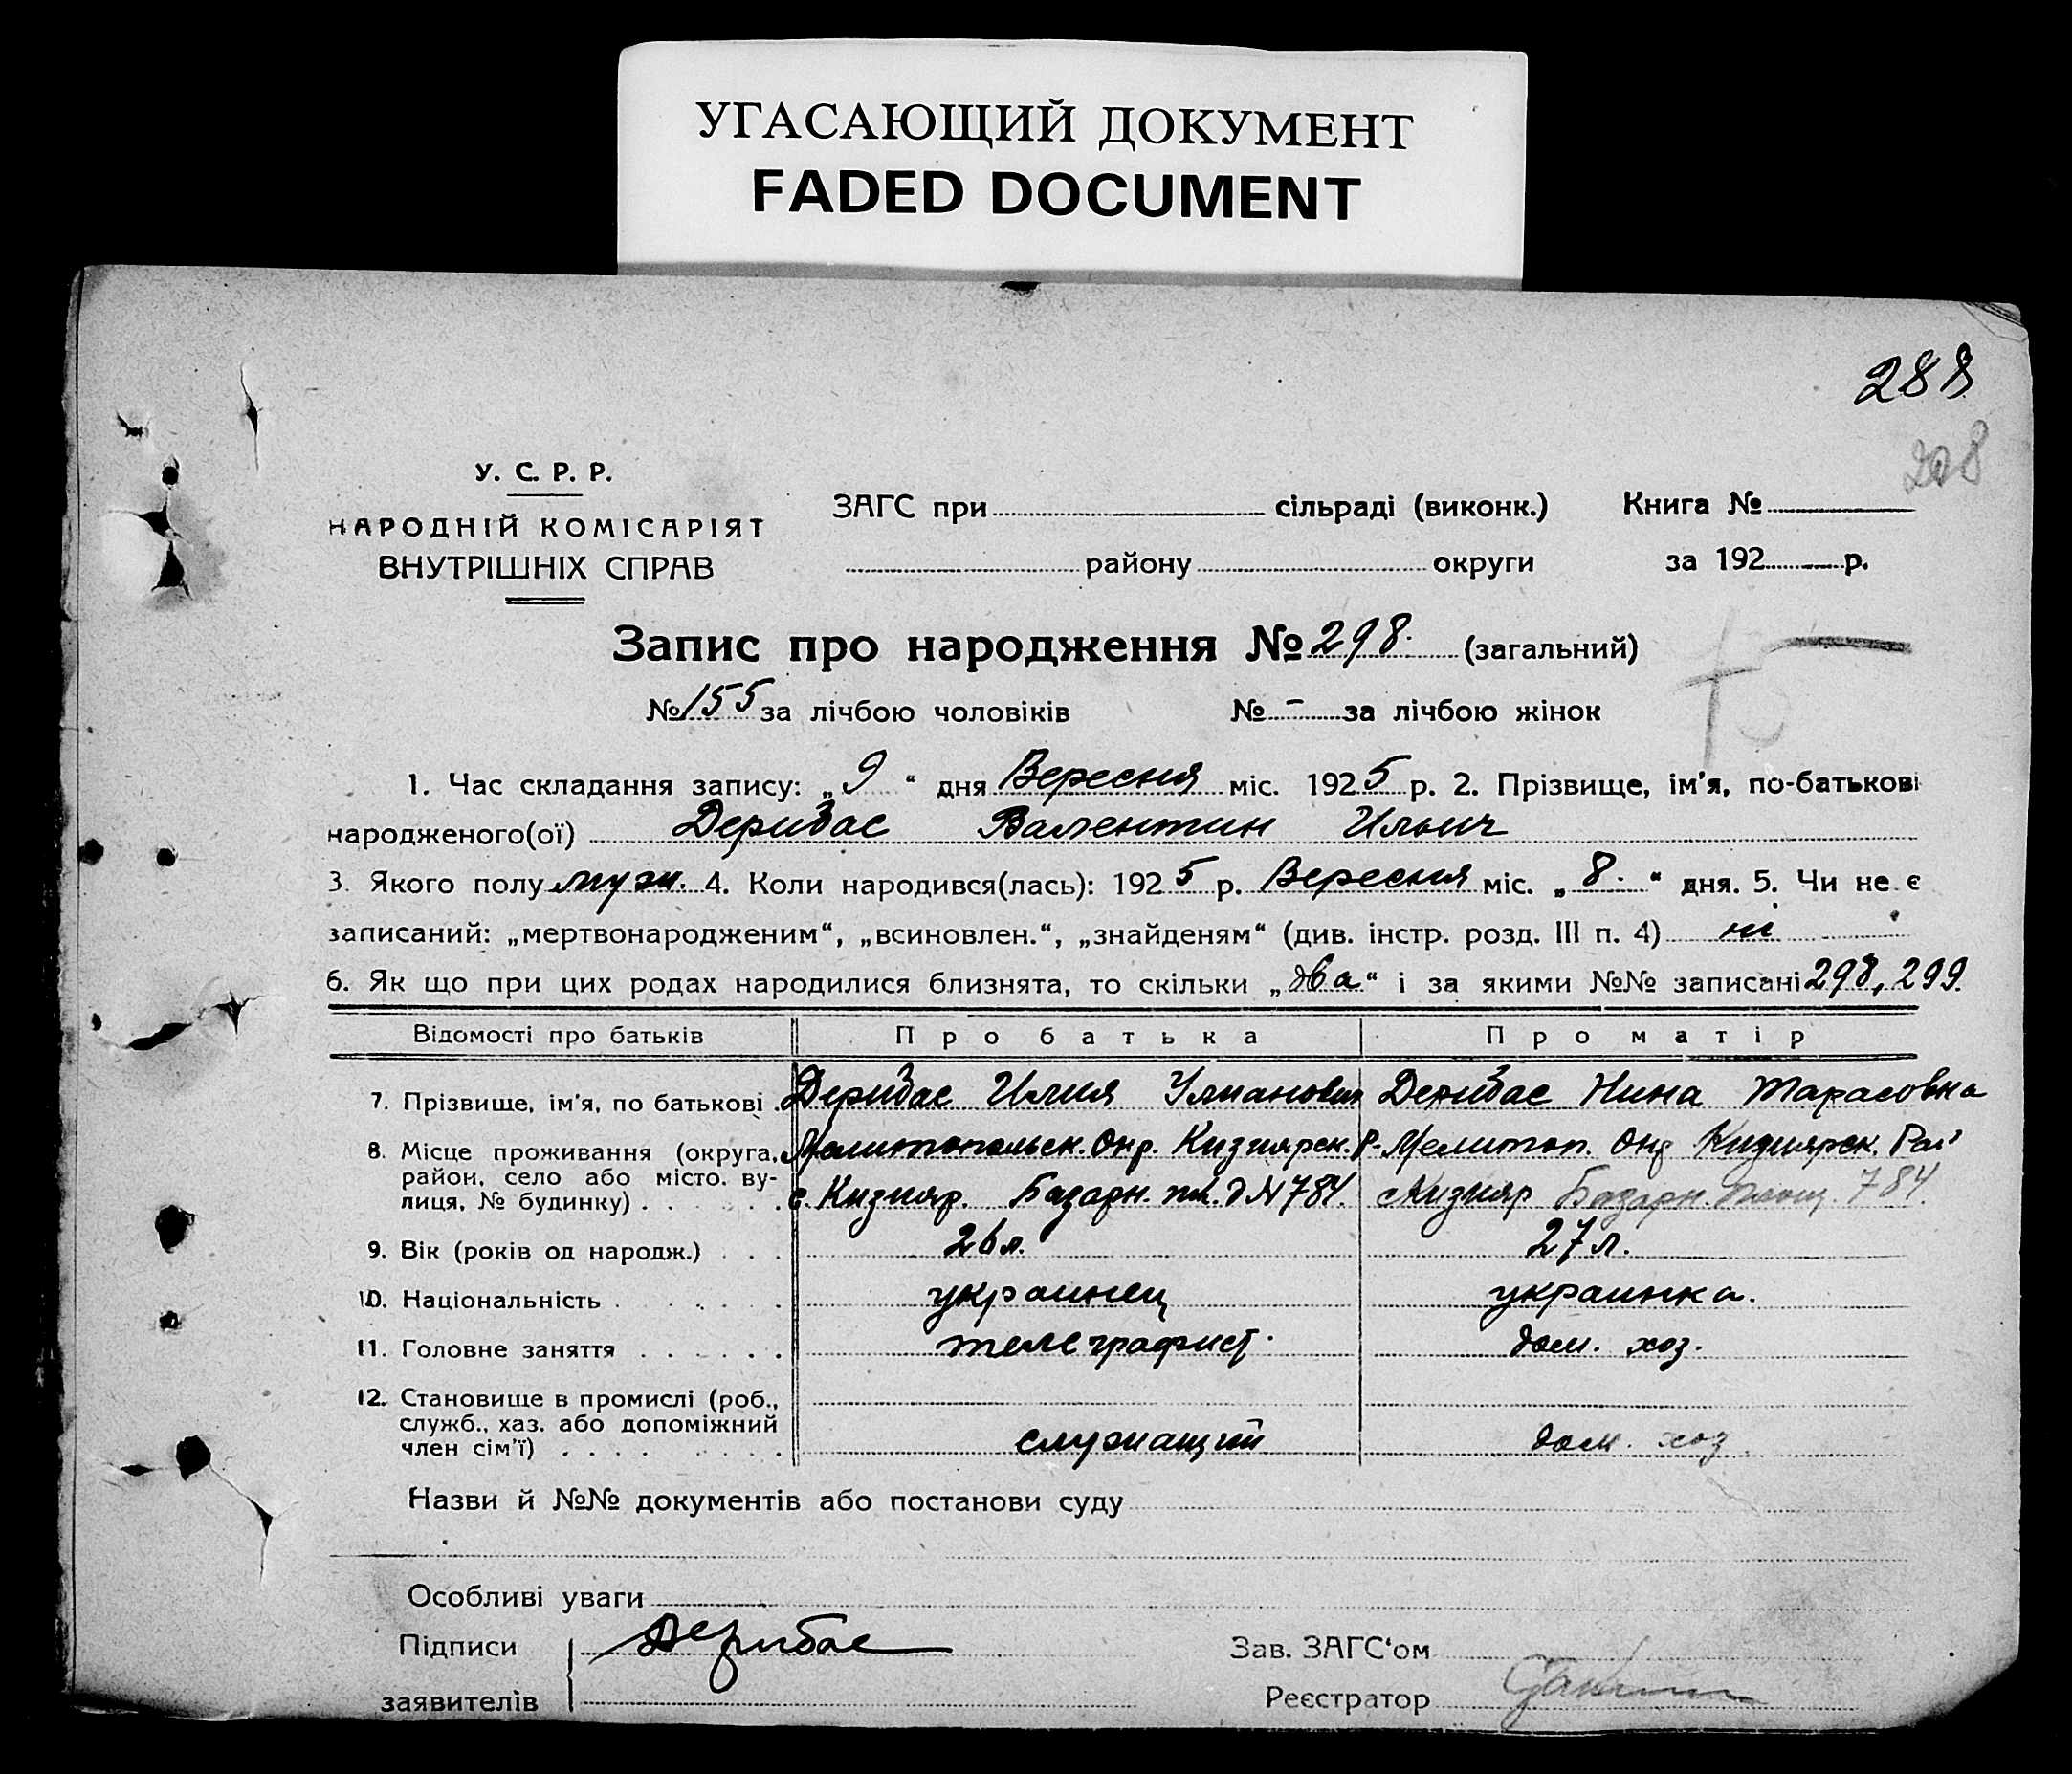 УГАСАЮЩИЙ ДОКУМЕНТ
FADED DOCUMENT
288
208
У. С. Р. Р.
НАРОДНІЙ КОМІСАРІЯТ
ВНУТРІШНІХ СПРАВ
ЗАГС при сільраді (виконк.) Книга №
району округи за 192 р.
Запис про народження № 298. (загальний)
№ 155 за лічбою чоловіків № - за лічбою жінок
1. Час складання запису: „9“ дня Вересня міс. 1925 р. 2. Прізвище, ім'я, по-батькові
народженого(ої) Дерибас Валентин Ильич
3. Якого полу муж. 4. Коли народився(лась): 1925 р. Вересня міс. „8.“ дня. 5. Чи не є
записаний: „мертвонародженим“, „всиновлен.“, „знайденям“ (див. інстр. розд. III п. 4) ні
6. Як що при цих родах народилися близнята, то скільки „два“ і за якими №№ записані 298, 299.
Відомості про батьків Про батька Про матір
7. Прізвище, ім'я, по батькові Дерибас Илия Улианович Дерибас Нина Тарасовна
8. Місце проживання (округа, Мелитопольск. Окр. Кизиярск. Р- Мелитоп. Окр Кизиярск. Рай
район, село або місто, ву-
лиця, № будинку) с. Кизияр. Базарн. пл. д № 784. с Кизияр Базарн. площ. 784.
9. Вік (років од народж.) 26 л. 27 л.
10. Національність украинец украинка.
11. Головне заняття телеграфист. дом. хоз.
12. Становище в промислі (роб.,
служб., хаз. або допоміжний
член сім'ї) служащий дом. хоз.
Назви й №№ документів або постанови суду
Особливі уваги
Підписи Дерибас Зав. ЗАГС'ом
заявителів Реєстратор